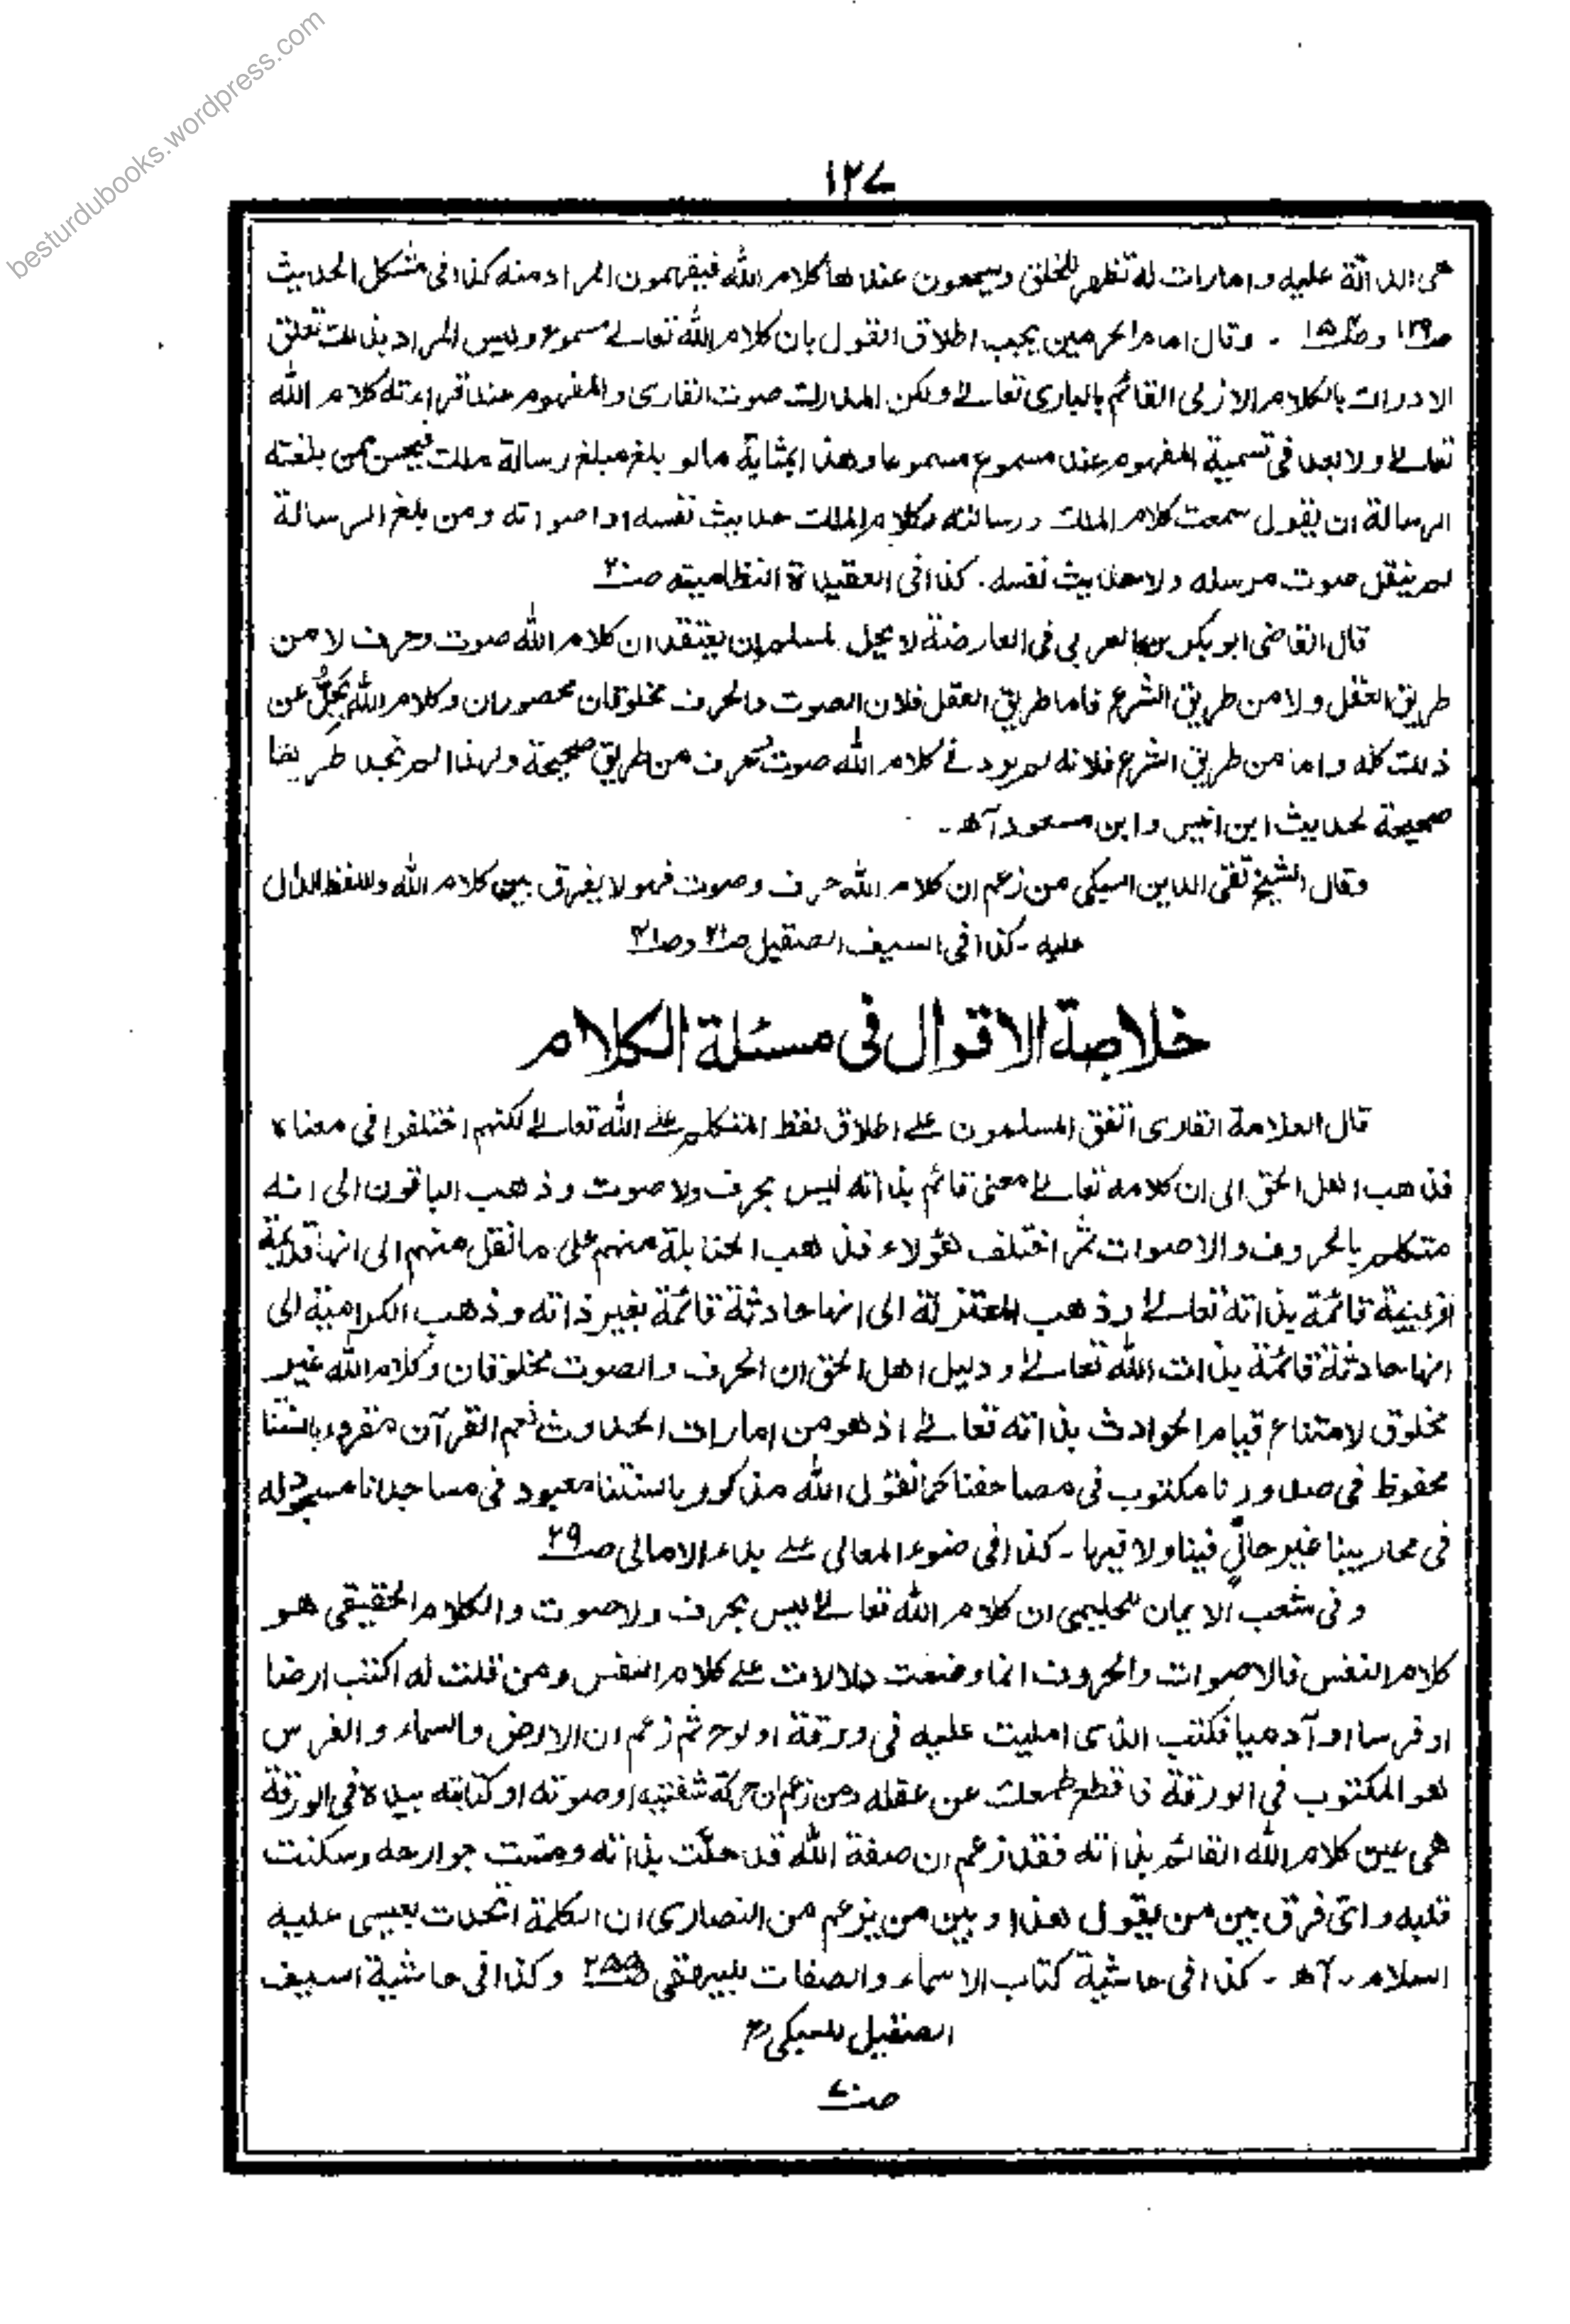 besturdubooks.wordpress.com
١٢٧
هى الدالة عليه وامارات له تظهر للخلق ويسمعون عندها كلام الله فيفهمون المراد منه كذا فى مشكل الحديث
ص١٢٩ و . وقال امام الحرمين يجب اطلاق القول بان كلام الله تعالے مسموع وليس المراد بذلك تعلق
الادراك بالكلام الازلى القائم بالبارى تعالے ولكن المدرك صوت القارى والمفهوم عند قراءته كلام الله
تعالے ولا بعد فى تسمية المفهوم عند مسموع مسموعا وهذا بمثابة ما لو بلغ مبلغ رسالة ملك فيحسن ممن بلغته
الرسالة ان يقول سمعت كلام الملك ورسالته وكلام الملك حديث نفسه او اصواته ومن بلغ الرسالة
لم ينقل صوت مرسله ولا حديث نفسه. كذا فى العقيدة النظامية ص٢٠
قال القاضى ابو بكر بن العربى فى العارضة لا يحل لمسلم ان يعتقد ان كلام الله صوت وحرف لا من
طريق العقل ولا من طريق الشرع فاما طريق العقل فلان الصوت والحرف مخلوقان محصوران وكلام الله يَجِلُّ عن
ذلك كله واما من طريق الشرع فلانه لم يرد فے كلام الله صوت وحرف من طريق صحيحة ولهذا لم نجد طريقا
صحيحة لحديث ابن انيس وابن مسعود آھ ۔
وقال الشيخ تقى الدين السبكى من زعم ان كلام الله حرف وصوت فهو لا يفرق بين كلام الله واللفظ الدال
عليه ۔ كذا فى السيف الصقيل ص٢١ و ص٢١
خلاصة الاقوال فى مسئلة الكلام
قال العلامة القارى اتفق المسلمون علے اطلاق لفظ المتكلم علے الله تعالے لكنهم اختلفوا فى معناه
فذهب اهل الحق الى ان كلامه تعالے معنى قائم بذاته ليس بحرف ولا صوت وذهب الباقون الى انه
متكلم بالحروف والاصوات ثم اختلف هؤلاء فذهب الحنابلة منهم على ما نقل منهم الى انها قديمة
ازلية قائمة بذاته تعالے وذهب المعتزلة الى انها حادثة قائمة بغير ذاته وذهب الكرامية الى
انها حادثة قائمة بذات الله تعالے ودليل اهل الحق ان الحرف والصوت مخلوقان وكلام الله غير
مخلوق لامتناع قيام الحوادث بذاته تعالے اذ هو من امارات الحدوث نعم القرآن مقروء بالسنتنا
محفوظ فى صدورنا مكتوب فى مصاحفنا كما نقول الله مذكور بالسنتنا معبود فى مساجدنا مسجود له
فى محاريبنا غير حالٍّ فينا ولا فيها ۔ كذا فى ضوء المعالى علے بدء الامالى ص٢٩
وفى شعب الايمان للحليمى ان كلام الله تعالے ليس بحرف ولا صوت والكلام الحقيقى هو
كلام النفس فالاصوات والحروف انما وضعت دلالات علے كلام النفس ومن قلت له اكتب ارضا
او فرسا او آدميا فكتب الذى امليت عليه فى ورقة او لوح ثم زعم ان الارض والسماء والفرس
هو المكتوب فى الورقة فاقطع طمعك عن عقله ومن زعم ان حركة شفتيه او صوته او كتابته بيده فى الورقة
هى عين كلام الله القائم بذاته فقد زعم ان صفة الله قد حلّت بذاته ومست جوارحه وسكنت
قلبه واى فرق بين من يقول هذا وبين من يزعم من النصارى ان الكلمة اتحدت بعيسى عليه
السلام ۔ آھ ۔ كذا فى حاشية كتاب الاسماء والصفات للبيهقى ص٢٥٥ وكذا فى حاشية السيف
الصقيل للسبكى
ص٧٠